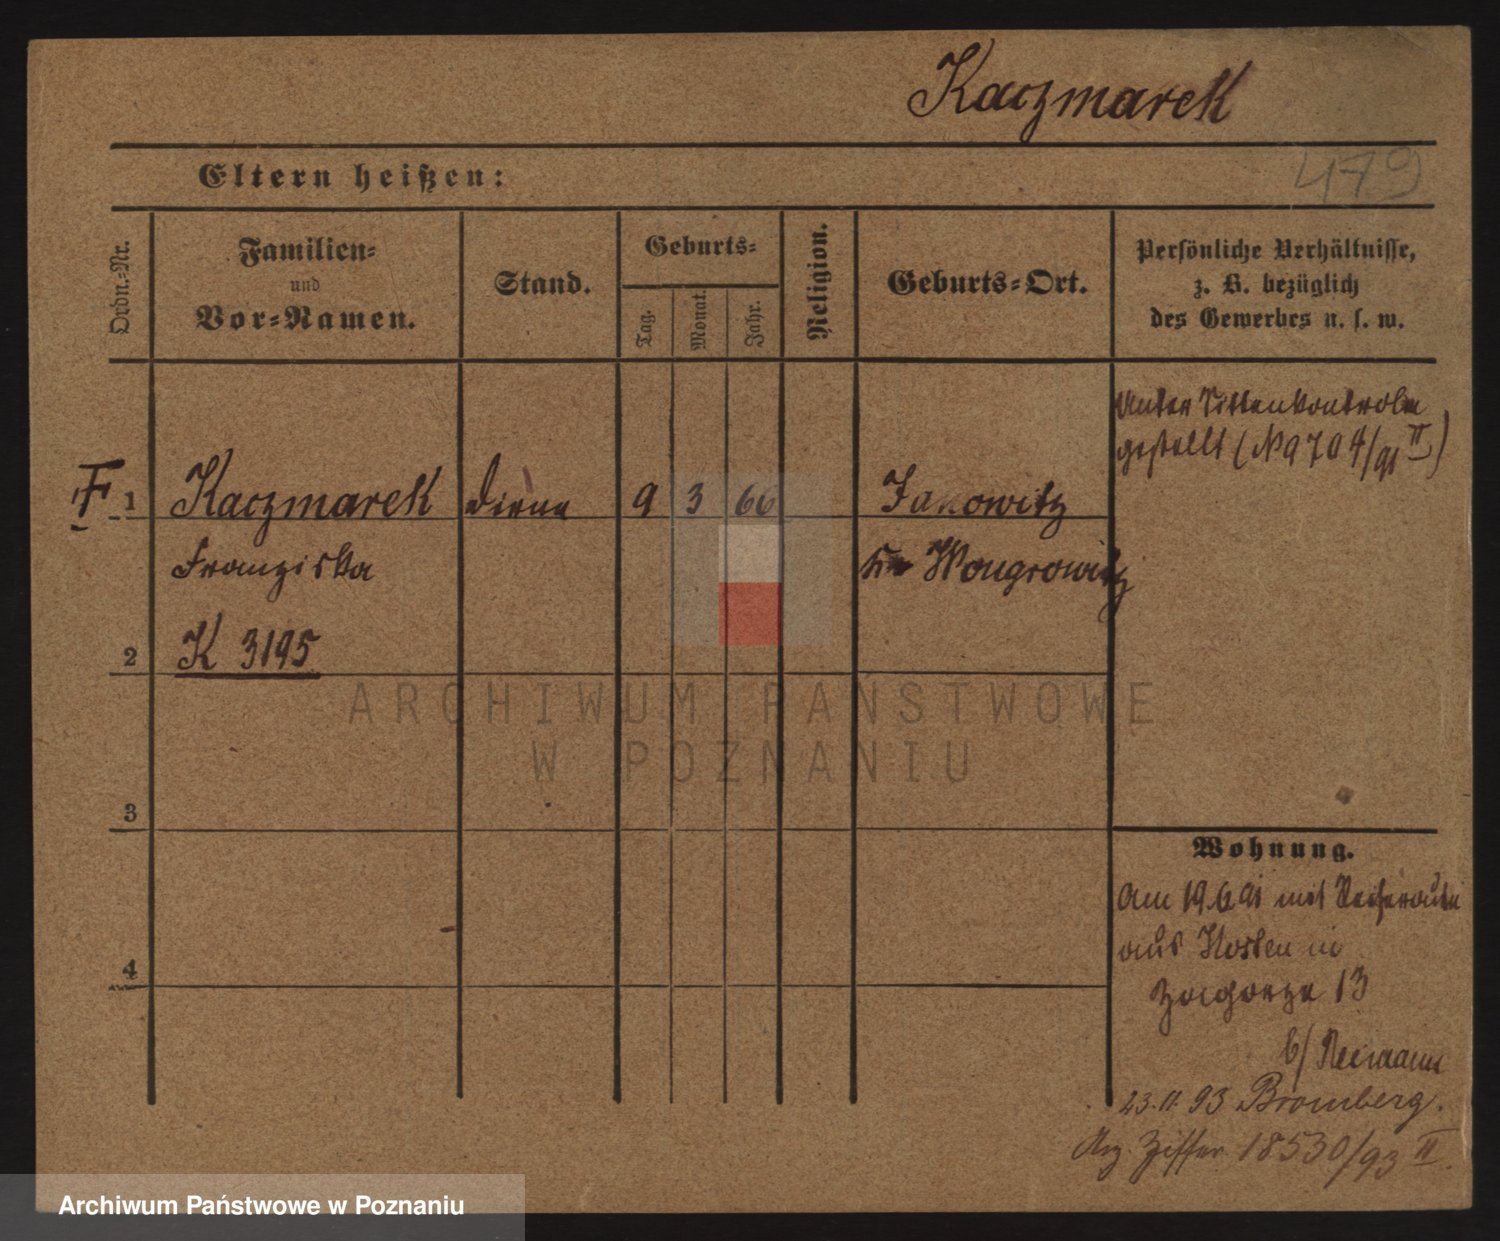 Kaczmarek
479
Eltern heißen:
Ordn.-Nr.
Familien-
und
Vor-Namen.
Stand.
Geburts-
Tag.
Monat.
Jahr.
Religion.
Geburts-Ort.
Persönliche Verhältnisse,
z. B. bezüglich
des Gewerbes u. s. w.
Unter Sittenkontrole
gestellt (No 704/91 II)
F 1 Kaczmarek Dirne 9 3 66 Janowitz
Franziska
Kr Wongrowitz
K 3195
2
3
4
Wohnung.
Am 19.6.91 mit Reiseroute
aus Kosten in
Zagorze 13
b/ Neumann
23.11.93 Bromberg.
Arz. Ziffer 18530/93 II.
ARCHIWUM PAŃSTWOWE
W POZNANIU
Archiwum Państwowe w Poznaniu